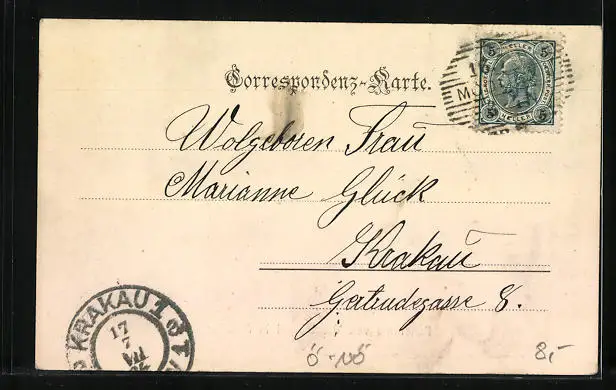 Correspondenz-Karte.
5 HELLER 5
5 HELLER 5
Wolgeboren Frau
Marianne Glück
Krakau
Gertrudegasse 8.
KRAKAU 1
17
7
VII
Ö-NÖ
8,-